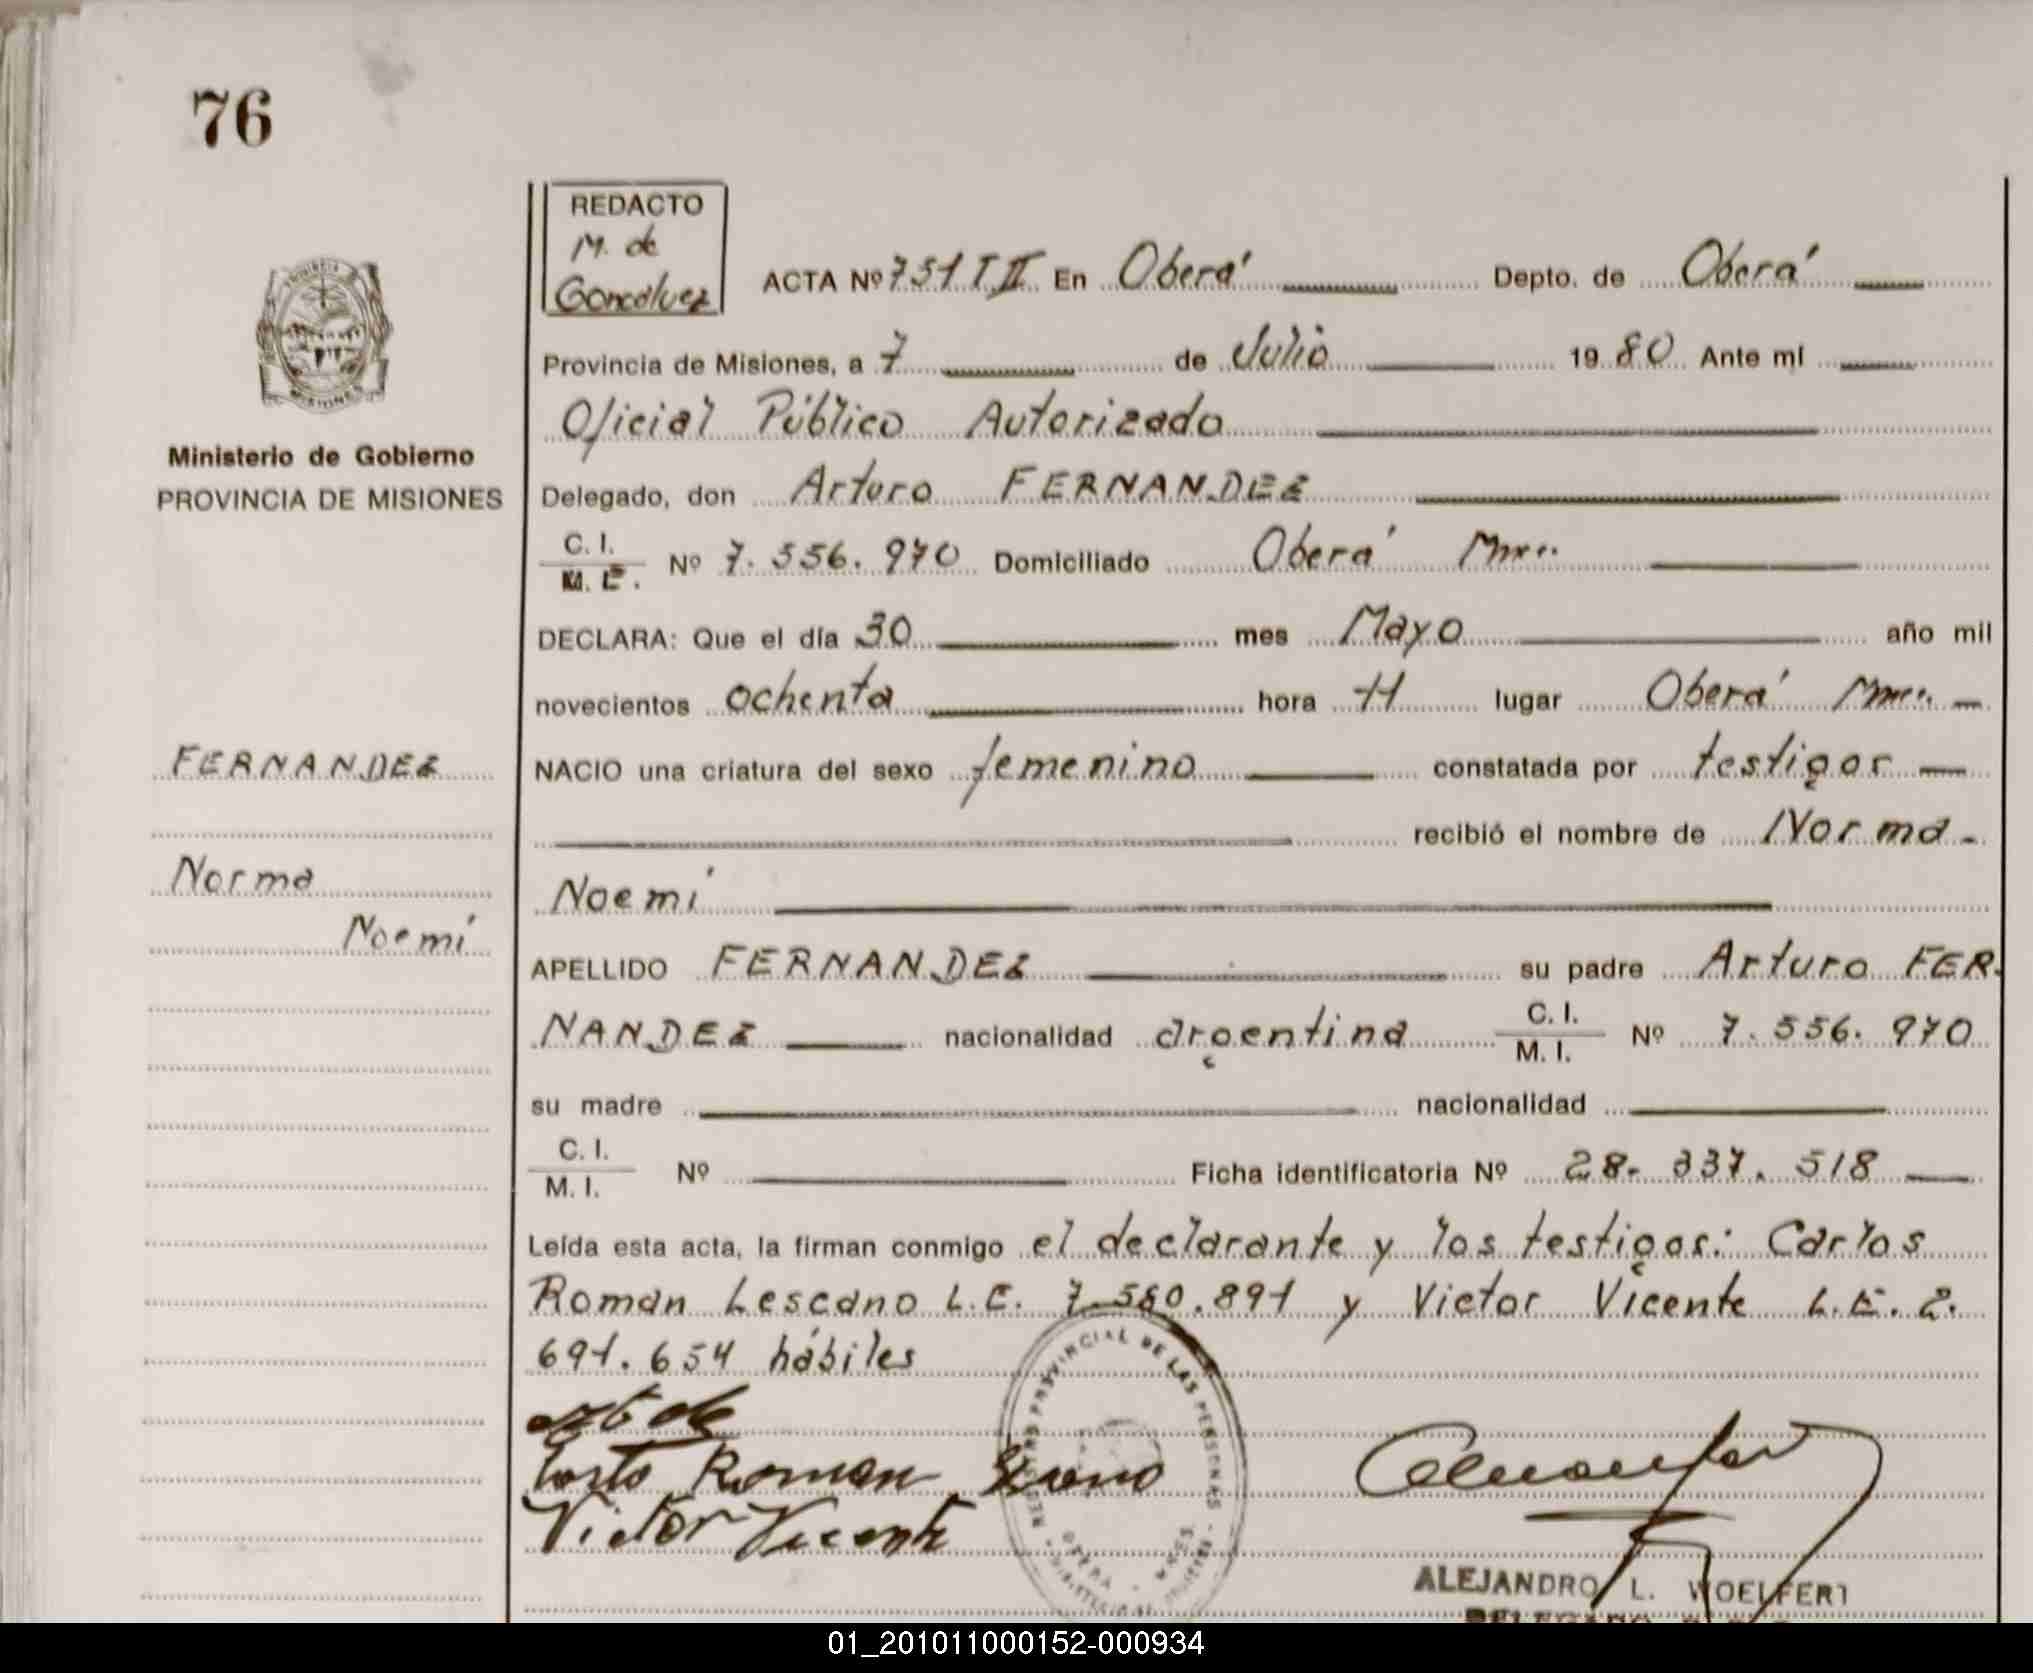 76
REDACTO
M. de
Goncalvez
ACTA Nº 751 T II En Oberá Depto. de Oberá
Provincia de Misiones, a 7 de Julio 1980 Ante mí
Oficial Público Autorizado
Ministerio de Gobierno
PROVINCIA DE MISIONES
Delegado, don Arturo FERNANDEZ
C. I.
M. E. Nº 7.556.970 Domiciliado Oberá Mnes.
DECLARA: Que el día 30 mes Mayo año mil
novecientos ochenta hora 11 lugar Oberá Mnes.
FERNANDEZ
NACIO una criatura del sexo femenino constatada por testigos
recibió el nombre de Norma
Norma
Noemí
Noemí
APELLIDO FERNANDEZ su padre Arturo FER-
NANDEZ nacionalidad argentina C. I. M. I. Nº 7.556.970
su madre nacionalidad
C. I.
M. I. Nº Ficha identificatoria Nº 28.337.518
Leída esta acta, la firman conmigo el declarante y los testigos: Carlos
Roman Lescano L.E. 7.580.891 y Victor Vicente L.E. 2.
691.654 hábiles
Roman
Victor Vicente
REGISTRO PROVINCIAL DE LAS PERSONAS
OBERA - MNES.
ALEJANDRO L. WOELFERT
01_201011000152-000934